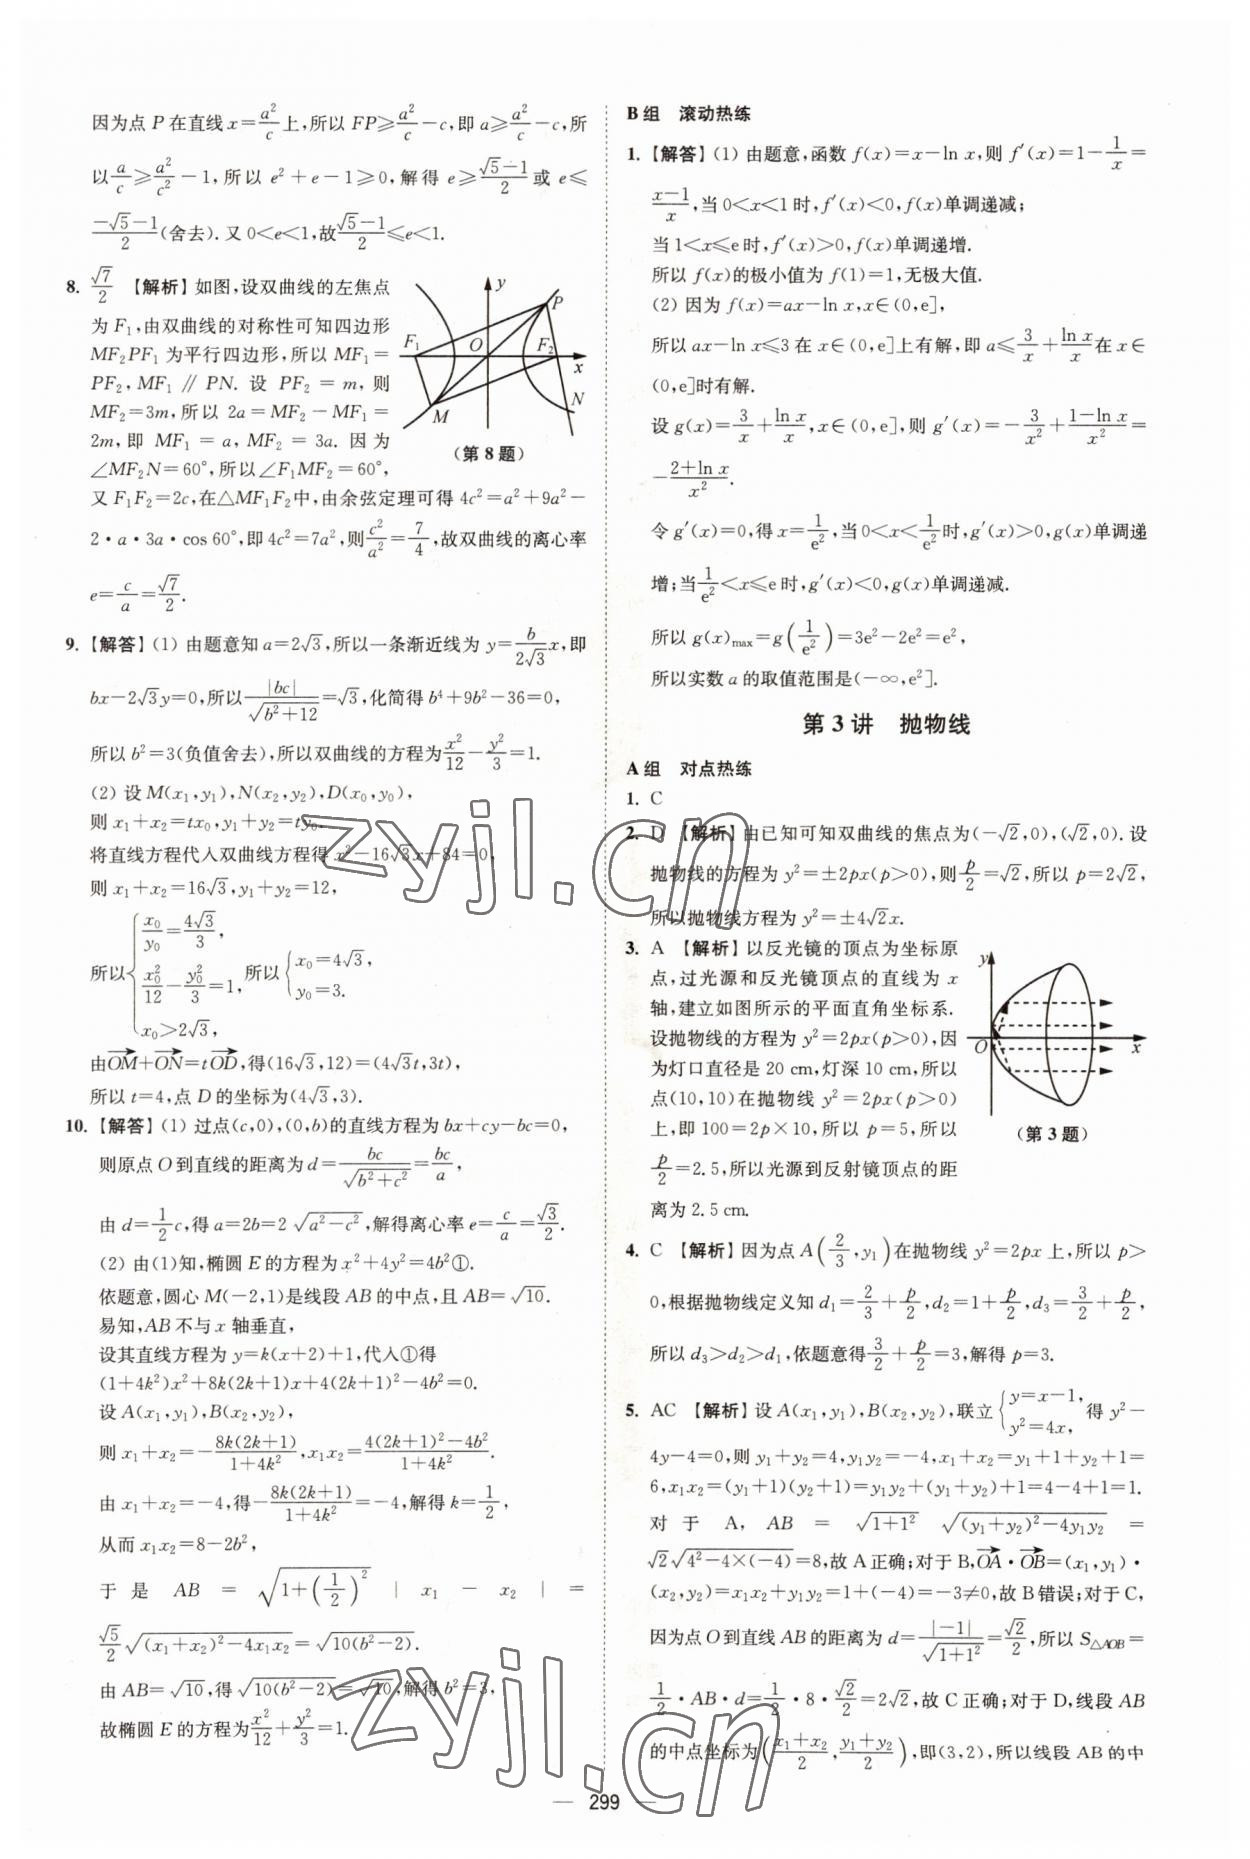 因为点 P 在直线 x=a²/c上,所以 FP≥a²/c-c,即 a≥a²/c-c,所
以a/c≥a²/c²-1,所以 e²+e-1≥0,解得 e≥(√5-1)/2或 e≤
(-√5-1)/2(舍去).又 0<e<1,故(√5-1)/2≤e<1.
8. √7/2 【解析】如图,设双曲线的左焦点
为 F₁,由双曲线的对称性可知四边形
MF₂PF₁ 为平行四边形,所以 MF₁=
PF₂,MF₁∥PN. 设 PF₂=m,则
MF₂=3m,所以 2a=MF₂-MF₁=
2m,即 MF₁=a,MF₂=3a.因为
∠MF₂N=60°,所以∠F₁MF₂=60°,
又 F₁F₂=2c,在△MF₁F₂中,由余弦定理可得 4c²=a²+9a²-
2·a·3a·cos 60°,即 4c²=7a²,则c²/a²=7/4,故双曲线的离心率
e=c/a=√7/2.
y
P
F₁
O
F₂
x
M
N
(第 8 题)
9. 【解答】(1) 由题意知 a=2√3,所以一条渐近线为 y=b/(2√3)x,即
bx-2√3y=0,所以|bc|/√(b²+12)=√3,化简得 b⁴+9b²-36=0,
所以 b²=3(负值舍去),所以双曲线的方程为x²/12-y²/3=1.
(2) 设 M(x₁,y₁),N(x₂,y₂),D(x₀,y₀),
则 x₁+x₂=tx₀,y₁+y₂=ty₀.
将直线方程代入双曲线方程得 x²-16√3x+84=0,
则 x₁+x₂=16√3,y₁+y₂=12,
所以{x₀/y₀=4√3/3,
x₀²/12-y₀²/3=1, 所以{x₀=4√3,
y₀=3.
x₀>2√3,
由OM→+ON→=tOD→,得(16√3,12)=(4√3t,3t),
所以 t=4,点 D 的坐标为(4√3,3).
10. 【解答】(1) 过点(c,0),(0,b)的直线方程为 bx+cy-bc=0,
则原点 O 到直线的距离为 d=bc/√(b²+c²)=bc/a,
由 d=1/2c,得 a=2b=2√(a²-c²),解得离心率 e=c/a=√3/2.
(2) 由(1)知,椭圆 E 的方程为 x²+4y²=4b²①.
依题意,圆心 M(-2,1)是线段 AB 的中点,且 AB=√10.
易知,AB 不与 x 轴垂直,
设其直线方程为 y=k(x+2)+1,代入①得
(1+4k²)x²+8k(2k+1)x+4(2k+1)²-4b²=0.
设 A(x₁,y₁),B(x₂,y₂),
则 x₁+x₂=-8k(2k+1)/(1+4k²),x₁x₂=(4(2k+1)²-4b²)/(1+4k²).
由 x₁+x₂=-4,得-8k(2k+1)/(1+4k²)=-4,解得 k=1/2,
从而 x₁x₂=8-2b²,
于是 AB=√(1+(1/2)²)|x₁-x₂|=
√5/2√((x₁+x₂)²-4x₁x₂)=√(10(b²-2)).
由 AB=√10,得√(10(b²-2))=√10,解得 b²=3,
故椭圆 E 的方程为x²/12+y²/3=1.
B 组 滚动热练
1. 【解答】(1) 由题意,函数 f(x)=x-ln x,则 f′(x)=1-1/x=
(x-1)/x,当 0<x<1 时,f′(x)<0,f(x)单调递减;
当 1<x≤e 时,f′(x)>0,f(x)单调递增.
所以 f(x)的极小值为 f(1)=1,无极大值.
(2) 因为 f(x)=ax-ln x,x∈(0,e],
所以 ax-ln x≤3 在 x∈(0,e]上有解,即 a≤3/x+ln x/x在 x∈
(0,e]时有解.
设 g(x)=3/x+ln x/x,x∈(0,e],则 g′(x)=-3/x²+(1-ln x)/x²=
-(2+ln x)/x².
令 g′(x)=0,得 x=1/e²,当 0<x<1/e²时,g′(x)>0,g(x)单调递
增;当1/e²<x≤e 时,g′(x)<0,g(x)单调递减.
所以 g(x)max=g(1/e²)=3e²-2e²=e²,
所以实数 a 的取值范围是(-∞,e²].
第 3 讲 抛物线
A 组 对点热练
1. C
2. D 【解析】由已知可知双曲线的焦点为(-√2,0),(√2,0).设
抛物线的方程为 y²=±2px(p>0),则p/2=√2,所以 p=2√2,
所以抛物线方程为 y²=±4√2x.
3. A 【解析】以反光镜的顶点为坐标原
点,过光源和反光镜顶点的直线为 x
轴,建立如图所示的平面直角坐标系.
设抛物线的方程为 y²=2px(p>0),因
为灯口直径是 20 cm,灯深 10 cm,所以
点(10,10)在抛物线 y²=2px(p>0)
上,即 100=2p×10,所以 p=5,所以
p/2=2.5,所以光源到反射镜顶点的距
离为 2.5 cm.
y
O
x
(第 3 题)
4. C 【解析】因为点 A(2/3,y₁)在抛物线 y²=2px 上,所以 p>
0,根据抛物线定义知 d₁=2/3+p/2,d₂=1+p/2,d₃=3/2+p/2,
所以 d₃>d₂>d₁,依题意得3/2+p/2=3,解得 p=3.
5. AC 【解析】设 A(x₁,y₁),B(x₂,y₂),联立{y=x-1,
y²=4x, 得 y²-
4y-4=0,则 y₁+y₂=4,y₁y₂=-4,x₁+x₂=y₁+1+y₂+1=
6,x₁x₂=(y₁+1)(y₂+1)=y₁y₂+(y₁+y₂)+1=4-4+1=1.
对于 A, AB=√(1+1²) √((y₁+y₂)²-4y₁y₂)=
√2√(4²-4×(-4))=8,故 A 正确;对于 B,OA→·OB→=(x₁,y₁)·
(x₂,y₂)=x₁x₂+y₁y₂=1+(-4)=-3≠0,故 B 错误;对于 C,
因为点 O 到直线 AB 的距离为 d=|-1|/√(1+1²)=√2/2,所以 S△AOB=
1/2·AB·d=1/2·8·√2/2=2√2,故 C 正确;对于 D,线段 AB
的中点坐标为((x₁+x₂)/2,(y₁+y₂)/2),即(3,2),所以线段 AB 的中
zyjl.cn
zyjl.cn
— 299 —